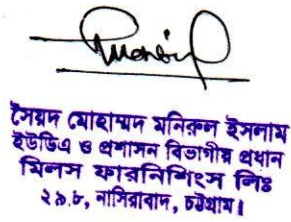 সৈয়দ মোহাম্মদ মনিরুল ইসলাম
ইউডিএ ও প্রশাসন বিভাগীয় প্রধান
মিলস ফারনিশিংস লিঃ
২৯.৮, নাসিরাবাদ, চট্টগ্রাম।